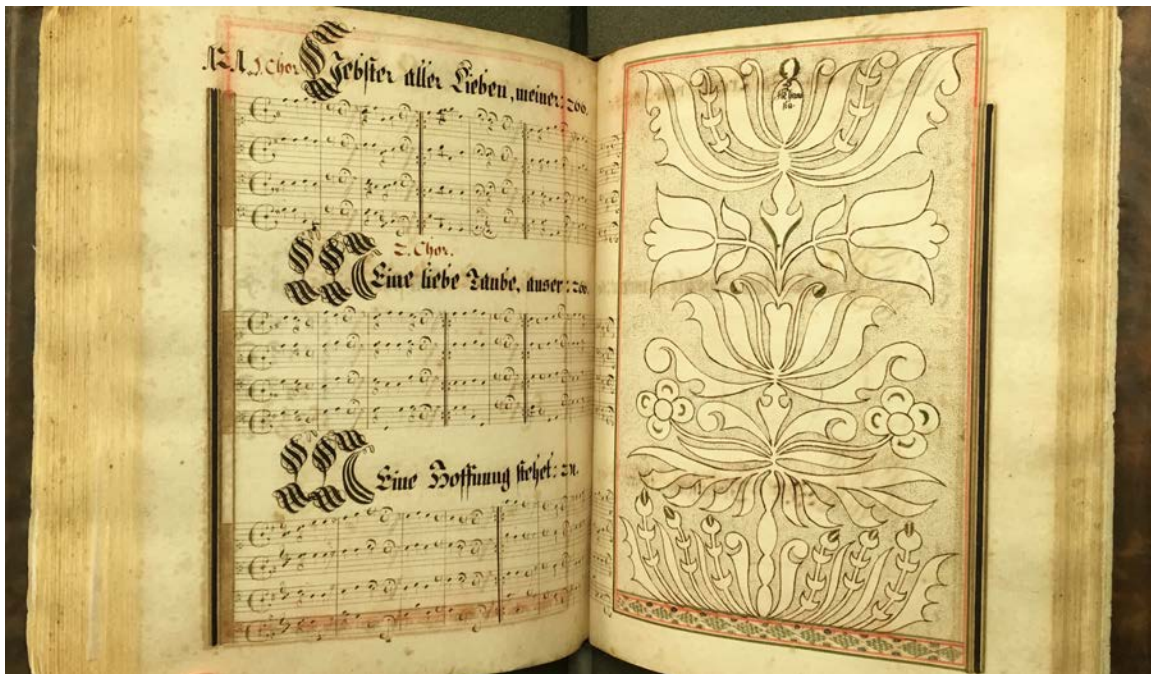 121. 1. Chor. Liebster aller Lieben, meiner: 200.
2. Chor.
Meine liebe Taube, auser: 200.
Meine Hoffnung stehet: 211.